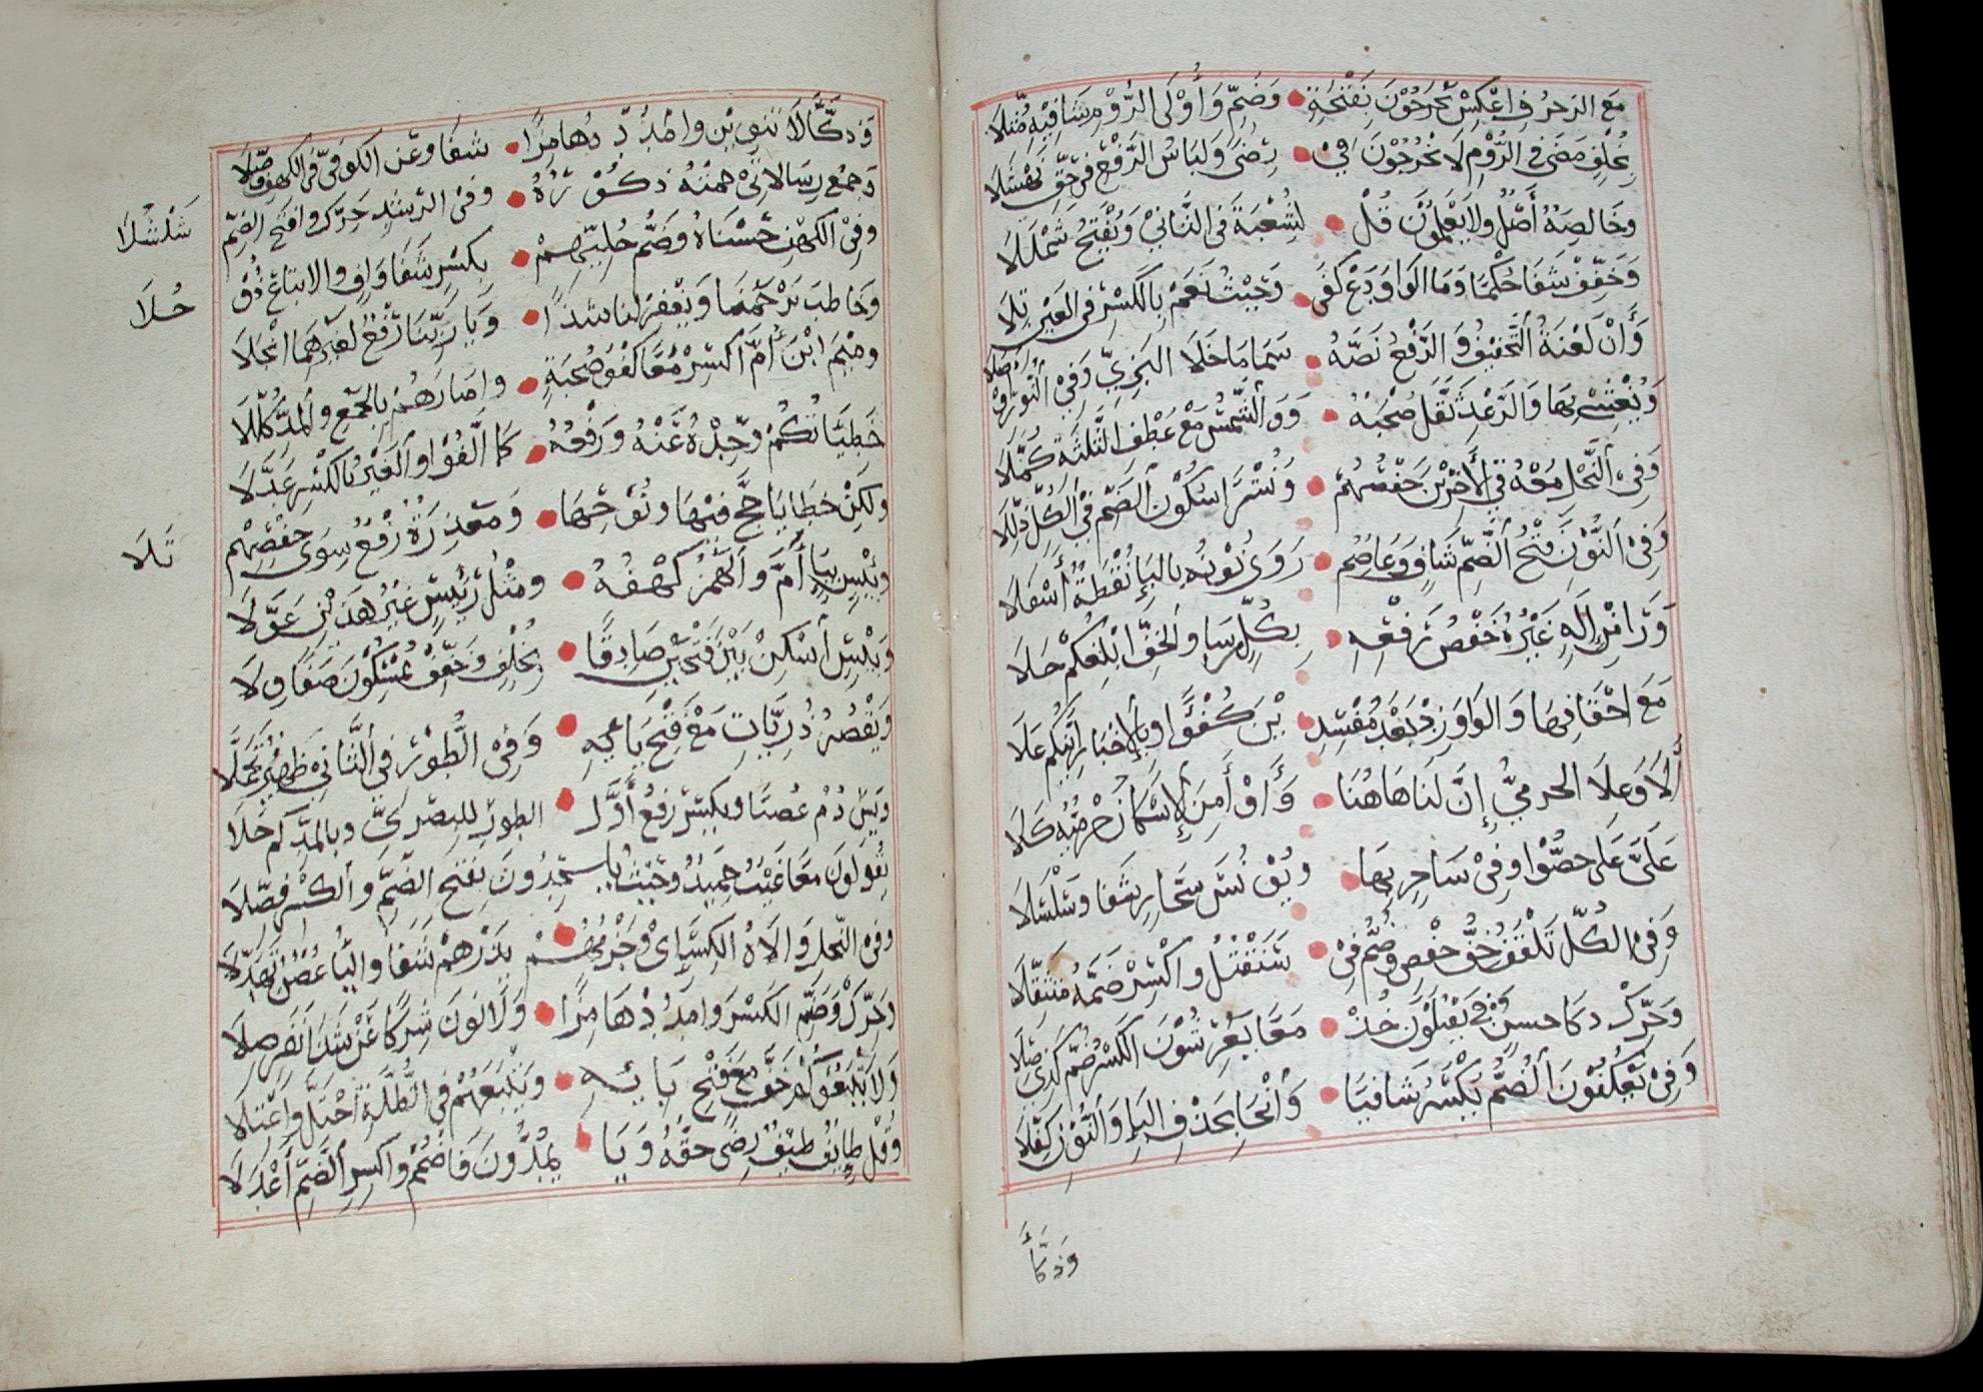 مَعَ الزخرُفِ اعْكِسْ تُخْرَجُوْنَ بِفَتْحَةٍ • وَضَمٍّ وَأُوْلَى الرُّوْمِ شَافِيْهِ مُثّلاَ
بِخُلْفٍ مَضَى فِي الرُّوْمِ لاَ يَخْرُجُوْنَ فِيْ • رِضًى وَلِبَاسُ الرَّفْعُ فِيْ حَقِّ نَهْشَلاَ
وخَالِصَةٌ أَصْلٌ ولاَ يَعْلَمُوْنَ قُلْ • لِشُعْبَةَ فِي الثَّانِيْ وَيُفْتَحُ شَمْلَلاَ
وَخَفِّفْ شَفَا حُكْمًا وَمَا الوَاوَ دَعْ كَفَى • وَحَيْثُ نَعَمْ بِالكَسْرِ فِي العَيْنِ رِتِلاَ
وَأَنْ لَعْنَةُ التَّخْفِيْفُ وَالرَّفْعُ نَصّهُ • سَمَا مَا خَلاَ البَزِيّ وَفِيْ النُّوْرِ أُوْصِلاَ
وَيُغْشِيْ بِهَا وَالرَّعْدِ ثَقَّلَ صُحْبَةٌ • وَوَالشَّمْسُ مَعْ عَطْفِ الثَّلثَةِ كَمَّلاَ
وَفِيْ النَّحْلِ مَعْهُ فِي الأَخِيْرَيْنِ حَفْصُهُمْ • وَنُشْرًا سُكُوْنُ الضَّمِّ فِيْ الكُلِّ ذُلِّلاَ
وَفِيْ النُّوْنِ فَتْحُ الضَّمِّ شَافٍ وَعَاصِمٌ • رَوَى نُوْنَهُ بِالبَاءِ نُقْطَةٌ أَسْفَلاَ
وَرَا مِنْ إِلَهٍ غَيْرُهُ خَفْضُ رَفْعِهِ • بِكُلٍّ رَسَا والخِفُّ ابْلِغُكُمْ حَلاَ
مَعَ احْقَافِهَا وَالوَاوَ زِدْ بَعْدَ مُفْسِدِ • يْنَ كُفْؤًا وبِالإِخْبَارِ إِنَّكُمُ عَلاَ
أَلاَ وَعلاَ الحرمِيُّ إِنَّ لَنَا هَاهُنَا • وَأَوْ أَمِنَ الإِسْكَانُ حِرْمِيُّهُ كَلاَ
عَلَيَّ عَلَى خصُّوْا وفِيْ سَاحِرٍ بِهَا • ويُوْنُسَ سَحَّارٍ شَفَا وتَسَلْسَلاَ
وَفِيْ الكُلِّ تَلْقَفْ خِفُّ حَفْصٍ وضُمَّ فِيْ • سَنَقْتُلُ واكْسِرْ ضَمَّهُ مُتَثَقِّلاَ
وَحَرِّكْ ذكَا حسنٍ وَفِيْ يَقْتُلُوْنَ خُذْ • مَعًا يَعْرِشُوْنَ الكَسْرُ ضُمَّ كَذِيْ صِلاَ
وَفِيْ يَعْكُفُوْنَ الضَّمُّ يُكْسَرُ شَافيَا • وَأَنْجَا بِحَذْفِ اليَاءِ وَالنُّوْنِ كُفِّلاَ
وَدَكَّا
وَدَكَّاءَ لاَ تَنْوِيْنَ وامْدُدْهُ هَامِزًا • شفَا وعَن الكوفِيّ فِي الكَهْفِ وُصِّلاَ
وَجمْعُ رِسَالاَتِيْ حمَتْهُ ذكُوْرُهُ • وفي الرشْدِ حَرِّكْ وافْتَح الضّمَّ
شلْشُلاَ
وفِيْ الكَهْفِ حُسْنَاهُ وضَمُّ حُلِيِّهِمْ • بِكَسْرٍ شَفَا وَافٍ والاتبَاعُ ذُوْ
حُلاَ
وخَاطَبَ تَرْحَمْنَا وَيَغْفِرْ لنا شذًا • وَيَا رَبَّنَا رَفْعٌ لغَيْرِهِمَا انْجَلاَ
ومِيْمَ ابْنَ أُمَّ اكْسِرْ مَعًا كُفْؤَ صُحْبَةٍ • وآصَارَهُمْ بِالجَمْعِ والمَدُّ كُلِّلاَ
خَطِيْئَاتُكُمْ وحِّدْهُ عَنْهُ ورَفْعُهُ • كَمَا أَلَّفُوْا والغَيْرُ بِالكَسْرِ عَدَّلاَ
ولَكِنْ خطَايَا حَجَّ فِيْهَا ونُوْحِهَا • وَمَعْذِرَةً رَفْعٌ سِوَى حَفْصِهِمْ
تَلاَ
وبِيْسٍ بِيَاءٍ أَمَّ والهَمْزُ كَهْفُهُ • ومِثْلُ رَئِيْسٍ غَيْرُ هَذَيْنِ عَوَّلاَ
وَبَيْئَسٍ اَسْكِنْ بَيْنَ فَتْحَيْنِ صَادِقًا • بِخُلْفٍ وَخَفِّفْ يُمْسِكُوْنَ صَفَا ولاَ
ويَقْصُرُ ذُرِّيَّاتِ مَعْ فَتْحِ تَائِهِ • وَفِيْ الطُّوْرِ فِي الثَّانِيْ ظَهِيْرٌ تَحَمَّلاَ
ويَس دُمْ غُصنًا ويكسَرُ رَفْعُ أَوَّلِ • الطورِ للبصْرِيّ وبالمَدِّ كَم حَلاَ
يَقُولُونَ مَعًا غَيْبٌ حمِيدٌ وحَيْثُ يُلْحِدُونَ بِفَتْحِ الضَّمِّ والكَسْرِ فُصِّلاَ
وفِي النَّحلِ وَالاَهُ الكِسَائِي وجَزْمُهُمْ • يَذَرْهُمْ شَفَا واليَاءُ غُصْنٌ تَهَدَّلاَ
وَحَرِّكْ وَضُمَّ الكَسْرَ وامْدُدْهُ هَامِزًا • وَلاَ نُونَ شِرْكًا عَنْ شَذَا نَفَرٍ صلاَ
ولاَ يَتْبَعُوْكُمْ خفَّ مَعْ فَتْحِ بَائِهِ • ويَتْبَعُهُمْ فِي الظُّلَّةِ احْتَلَّ واعْتَلاَ
وقُلْ طَائِفٌ طَيْفٌ رِضًى حَقُّهُ وَيَا • يَمُدُّونَ فَاضْمُمْ واكسِرِ الضَّمَّ أَعْدَلاَ